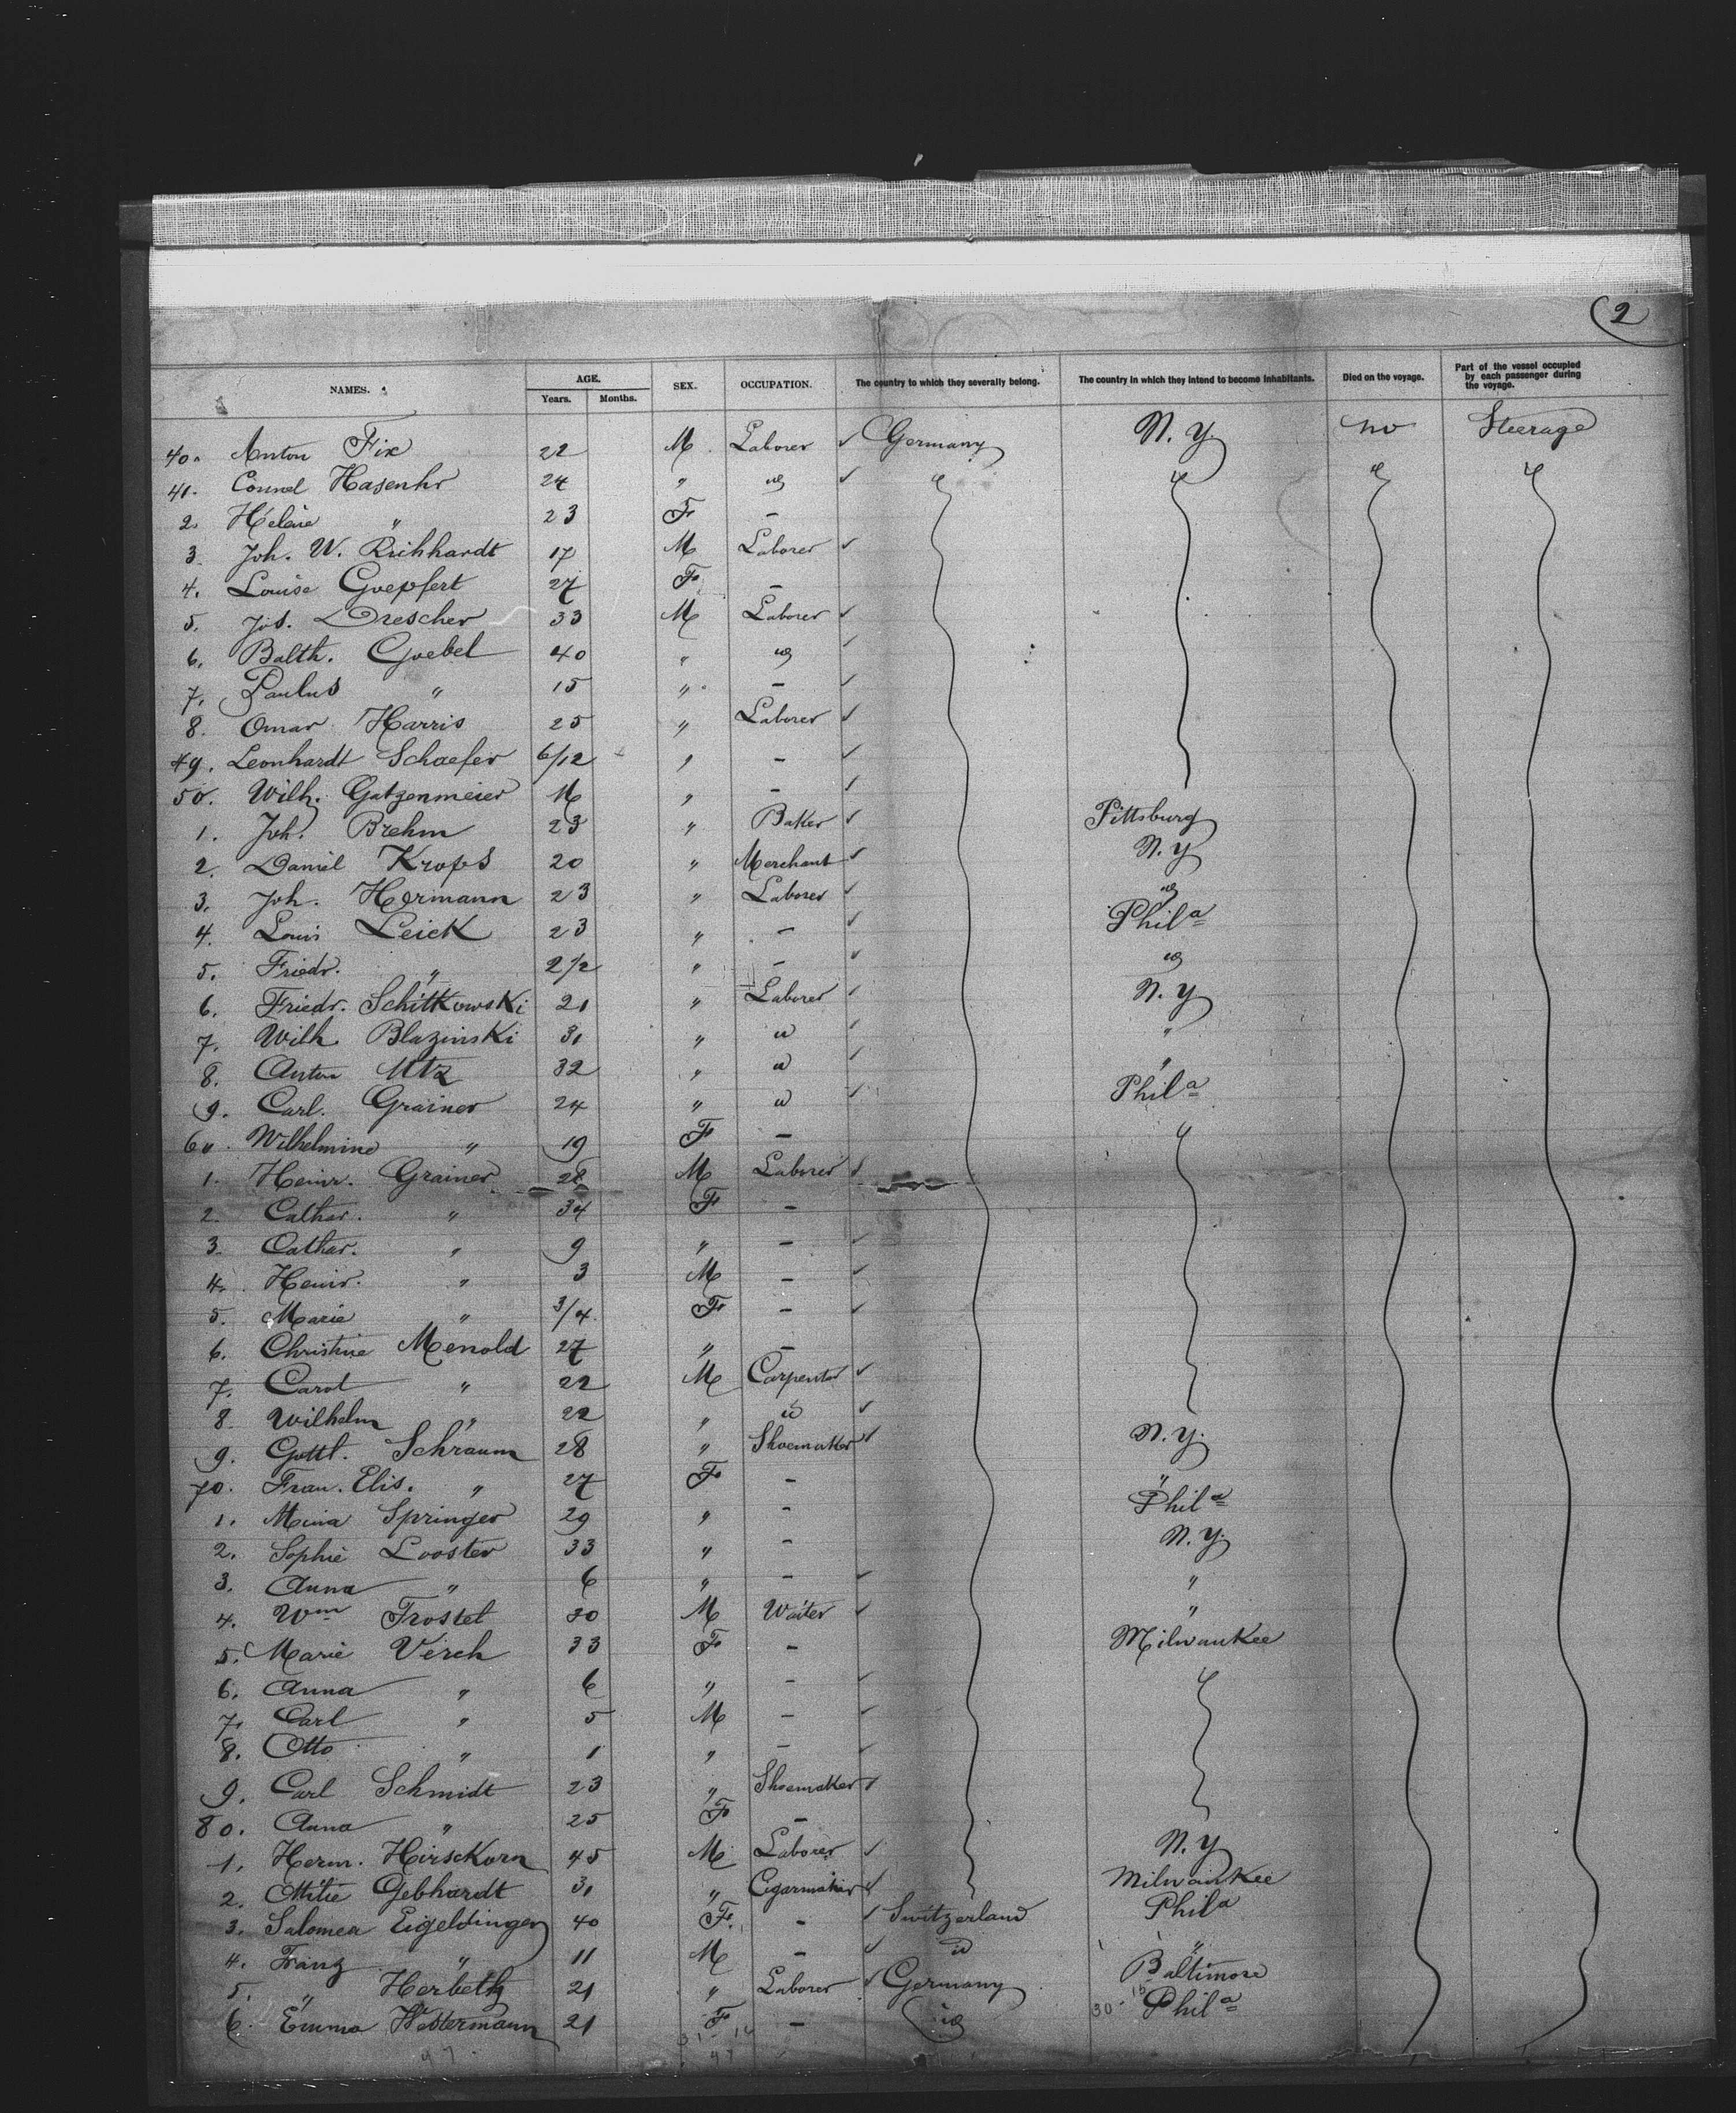 2
NAMES. AGE. SEX. OCCUPATION. The country to which they severally belong. The country in which they intend to become inhabitants. Died on the voyage. Part of the vessel occupied by each passenger during the voyage.
Years. Months.
40. Anton Fix 22 M. Laborer ✓ Germany N. Y. no Steerage
41. Conrad Hasenhr 24 " " ✓ " " " "
2. Heléne " 23 F —
3. Joh. W. Richhardt 17 M Laborer ✓
4. Louise Goepfert 27 F —
5. Jos. Drescher 33 M Laborer ✓
6. Balth. Goebel 40 " " ✓
7. Paulus " 15 " — ✓
8. Omar Harris 25 " Laborer ✓
49. Leonhardt Schaefer 6/12 " — ✓
50. Wilh. Gatzenmeier M " — ✓
1. Joh. Brehm 23 " Baker ✓ Pittsburg
2. Daniel Krops 20 " Merchant ✓ N. Y
3. Joh. Hermann 23 " Laborer ✓ "
4. Louis Leick 23 " — ✓ Phila
5. Friedr. " 2 1/2 " — ✓ "
6. Friedr. Schitkowski 21 " Laborer ✓ N. Y
7. Wilh. Blazinski 31 " " ✓ "
8. Anton Utz 32 " " ✓ "
9. Carl. Grainer 24 " " ✓ Phila
60. Wilhelmine " 19 F — "
1. Heinr. Grainer 28 M Laborer ✓
2. Cathar. " 34 F —
3. Cathar. " 9 " — ✓
4. Heinr. " 3 M — ✓
5. Marie " 3/4 F — ✓
6. Christine Menold 27 " —
7. Carol " 22 M Carpenter ✓
8. Wilhelm " 22 " " ✓
9. Gottl. Schraum 28 " Shoemaker ✓ N. Y.
70. Frau. Elis. " 27 F — "
1. Mina Springer 29 " — Phila
2. Sophie Looster 33 " — N. Y.
3. Anna " 6 " — ✓ "
4. Wm Trostel 30 M Waiter ✓ "
5. Marie Verch 33 F — Milwaukee
6. Anna " 6 " — ✓ "
7. Carl " 5 M — ✓
8. Otto " 1 " — ✓
9. Carl Schmidt 23 " Shoemaker ✓
80. Anna " 25 F —
1. Herm. Hirsckorn 45 M Laborer ✓ N. Y
2. Ottilie Gebhardt 31 " Cigarmaker ✓ Milwaukee
3. Salomea Eigeldinger 40 F. — ✓ Switzerland Phila
4. Franz " 11 M — ✓ " "
5. " Herbeth 21 " Laborer ✓ Germany Baltimore
6. Emma Westermann 21 F — " Phila